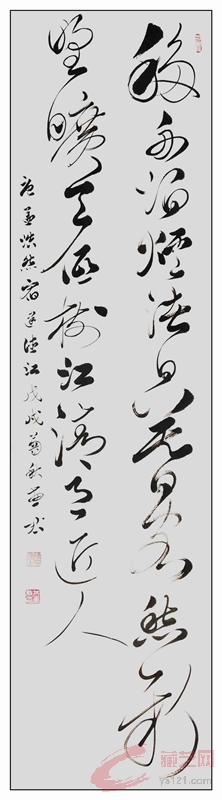 移舟泊烟渚日暮客愁新
野旷天低树江清月近人
唐孟浩然宿建德江戊戌菊秋
ys121.com